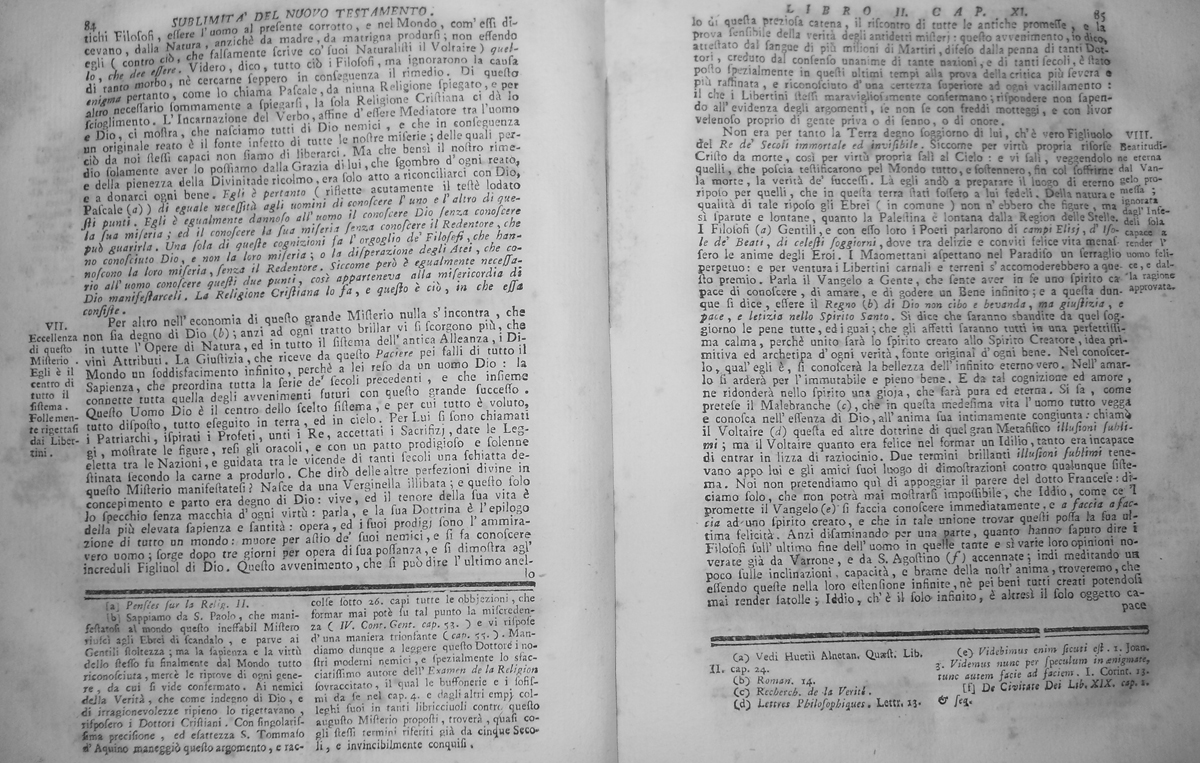 84 SUBLIMITA' DEL NUOVO TESTAMENTO.
tichi Filosofi, essere l'uomo al presente corrotto, e nel Mondo, com' essi di-
cevano, dalla Natura, anzichè da madre, da matrigna prodursi; non essendo
egli ( contro ciò, che falsamente scrive co' suoi Naturalisti il Voltaire ) quel-
lo, che dee essere. Videro, dico, tutto ciò i Filosofi, ma ignorarono la causa
di tanto morbo, nè cercarne seppero in conseguenza il rimedio. Di questo
enigma pertanto, come lo chiama Pascale, da niuna Religione spiegato, e per
altro necessario sommamente a spiegarsi, la sola Religione Cristiana ci dà lo
scioglimento. L'Incarnazione del Verbo, affine d'essere Mediatore tra l'uomo
e Dio, ci mostra, che nasciamo tutti di Dio nemici, e che in conseguenza
un originale reato è il fonte infetto di tutte le nostre miserie; delle quali per-
ciò da noi stessi capaci non siamo di liberarci. Ma che bensì il nostro rime-
dio solamente aver lo possiamo dalla Grazia di lui, che sgombro d'ogni reato,
e della pienezza della Divinitade ricolmo, era solo atto a riconciliarci con Dio,
e a donarci ogni bene. Egli è pertanto ( riflette acutamente il testè lodato
Pascale (a) ) di eguale necessità agli uomini di conoscere l'uno e l'altro di que-
sti punti. Egli è egualmente dannoso all'uomo il conoscere Dio senza conoscere
la sua miseria; ed il conoscere la sua miseria senza conoscere il Redentore, che
può guarirla. Una sola di queste cognizioni fa l'orgoglio de' Filosofi, che han-
no conosciuto Dio, e non la loro miseria; o la disperazione degli Atei, che co-
noscono la loro miseria, senza il Redentore. Siccome però è egualmente necessa-
rio all'uomo conoscere questi due punti, così apparteneva alla misericordia di
Dio manifestarceli. La Religione Cristiana lo fa, e questo è ciò, in che essa
consiste.
VII.
Eccellenza
di questo
Misterio.
Egli è il
centro di
tutto il
sistema.
Follemen-
te rigettasi
dai Liber-
tini.
Per altro nell'economia di questo grande Misterio nulla s'incontra, che
non sia degno di Dio (b); anzi ad ogni tratto brillar vi si scorgon più, che
in tutte l'Opere di Natura, ed in tutto il sistema dell'antica Alleanza, i Di-
vini Attributi. La Giustizia, che riceve da questo Paciere pei falli di tutto il
Mondo un soddisfacimento infinito, perchè a lei reso da un uomo Dio: la
Sapienza, che preordina tutta la serie de' secoli precedenti, e che insieme
connette tutta quella degli avvenimenti futuri con questo grande successo.
Questo Uomo Dio è il centro dello scelto sistema, e per cui tutto è voluto,
tutto disposto, tutto eseguito in terra, ed in cielo. Per lui si sono chiamati
i Patriarchi, ispirati i Profeti, unti i Re, accettati i Sacrifizj, date le Leg-
gi, mostrate le figure, resi gli oracoli, e con un patto prodigioso e solenne
eletta tra le Nazioni, e guidata tra le vicende di tanti secoli una schiatta de-
stinata secondo la carne a produrlo. Che dirò delle altre perfezioni divine in
questo Misterio manifestatesi? Nasce da una Verginella illibata; e questo solo
concepimento e parto era degno di Dio: vive, ed il tenore della sua vita è
lo specchio senza macchia d'ogni virtù: parla, e la sua Dottrina è l'epilogo
della più elevata sapienza e santità: opera, ed i suoi prodigj sono l'ammira-
zione di tutto un mondo: muore per astio de' suoi nemici, e si fa conoscere
vero uomo; sorge dopo tre giorni per opera di sua possanza, e si dimostra agl'
increduli Figliuol di Dio. Questo avvenimento, che si può dire l'ultimo anel-
lo
[a] Pensées sur la Relig. II.
[b] Sappiamo da S. Paolo, che mani-
festatosi al mondo questo ineffabil Mistero
riuscì agli Ebrei di scandalo, e parve ai
Gentili stoltezza; ma la sapienza e la virtù
dello stesso fu finalmente dal Mondo tutto
riconosciuta, mercè le riprove di ogni gene-
re, da cui si vide confermato. Ai nemici
della Verità, che come indegno di Dio, e
di irragionevolezze ripieno lo rigettavano,
risposero i Dottori Cristiani. Con singolaris-
sima precisione, ed esattezza S. Tommaso
d'Aquino maneggiò questo argomento, e rac-
colse sotto 26. capi tutte le obbjezioni, che
formar mai potè su tal punto la miscreden-
za ( IV. Cont. Gent. cap. 53. ) e vi rispose
d'una maniera trionfante (cap. 55.). Man-
diamo dunque a leggere questo Dottore i no-
stri moderni nemici, e spezialmente lo sfac-
ciatissimo autore dell'Examen de la Religion
sovraccitato, il qual le buffonerie e i sofis-
mi da se nel cap. 4. e dagli altri empj col-
leghi suoi in tanti libricciuoli contro questo
augusto Misterio proposti, troverà, quasi co-
gli stessi termini riferiti già da cinque Seco-
li, e invincibilmente conquisi.
LIBRO II. CAP. XI. 85
lo di questa preziosa catena, il riscontro di tutte le antiche promesse, e la
prova sensibile della verità degli antidetti misterj: questo avvenimento, io dico,
attestato dal sangue di più milioni di Martiri, difeso dalla penna di tanti Dot-
tori, creduto dal consenso unanime di tante nazioni, e di tanti secoli, è stato
posto spezialmente in questi ultimi tempi alla prova della critica più severa e
più raffinata, e riconosciuto d'una certezza superiore ad ogni vacillamento:
il che i Libertini stessi maravigliosamente confermano; rispondere non sapen-
do all'evidenza degli argomenti, se non se con freddi motteggi, e con livor
velenoso proprio di gente priva o di senno, o di onore.
Non era per tanto la Terra degno soggiorno di lui, ch'è vero Figliuolo
del Re de' Secoli immortale ed invisibile. Siccome per virtù propria risorse
Cristo da morte, così per virtù propria salì al Cielo: e vi salì, veggendolo
quelli, che poscia testificarono pel Mondo tutto, e sostennero, fin col soffrirne
la morte, la verità de' successi. Là egli andò a preparare il luogo di eterno
riposo per quelli, che in questa terra stati fossero a lui fedeli. Della natura e
qualità di tale riposo gli Ebrei ( in comune ) non n'ebbero che figure, ma
sì sparute e lontane, quanto la Palestina è lontana dalla Region delle Stelle.
I Filosofi (a) Gentili, e con esso loro i Poeti parlarono di campi Elisj, d'Iso-
le de' Beati, di celesti soggiorni, dove tra delizie e conviti felice vita menas-
sero le anime degli Eroi. I Maomettani aspettano nel Paradiso un serraglio
perpetuo: e per ventura i Libertini carnali e terreni s'accomoderebbero a que-
sto premio. Parla il Vangelo a Gente, che sente aver in se uno spirito ca-
pace di conoscere, di amare, e di godere un Bene infinito; e a questa dun-
que si dice, essere il Regno (b) di Dio non cibo e bevanda, ma giustizia, e
pace, e letizia nello Spirito Santo. Si dice che saranno sbandite da quel sog-
giorno le pene tutte, ed i guai; che gli affetti saranno tutti in una perfettissi-
ma calma, perchè unito sarà lo spirito creato allo Spirito Creatore, idea pri-
mitiva ed archetipa d'ogni verità, fonte original d'ogni bene. Nel conoscer-
lo, qual egli è, si conoscerà la bellezza dell'infinito eterno vero. Nell'amar-
lo si arderà per l'immutabile e pieno bene. E da tal cognizione ed amore,
ne ridonderà nello spirito una gioja, che sarà pura ed eterna. Si fa, come
pretese il Malebranche (c), che in questa medesima vita l'uomo tutto vegga
e conosca nell'essenza di Dio, all'anima sua intimamente congiunta: chiamò
il Voltaire (d) questa ed altre dottrine di quel gran Metafisico illusioni subli-
mi; ma il Voltaire quanto era felice nel formar un Idilio, tanto era incapace
di entrar in lizza di raziocinio. Due termini brillanti illusioni sublimi tene-
vano appo lui e gli amici suoi luogo di dimostrazioni contro qualunque siste-
ma. Noi non pretendiamo quì di appoggiar il parere del dotto Francese: di-
ciamo solo, che non potrà mai mostrarsi impossibile, che Iddio, come ce 'l
promette il Vangelo (e) si faccia conoscere immediatamente, e a faccia a fac-
cia ad uno spirito creato, e che in tale unione trovar questi possa la sua ul-
tima felicità. Anzi disaminando per una parte, quanto hanno saputo dire i
Filosofi sull'ultimo fine dell'uomo in quelle tante e sì varie loro opinioni no-
verate già da Varrone, e da S. Agostino (f) accennate; indi meditando un
poco sulle inclinazioni, capacità, e brame della nostr'anima, troveremo, che
essendo queste nella loro estensione infinite, nè pei beni tutti creati potendosi
mai render satolle; Iddio, ch'è il solo infinito, è altresì il solo oggetto ca-
pace
VIII.
Beatitudi-
ne eterna
dal Van-
gelo pro-
messa;
ignorata
dagl'Infe-
deli sola
capace a
render l'
uomo feli-
ce, e dal-
la ragione
approvata.
(a) Vedi Huetii Alnetan. Quæst. Lib.
II. cap. 24.
(b) Roman. 14.
(c) Recherch. de la Verité.
(d) Lettres Philosophiques. Lettr. 13.
(e) Videbimus enim sicuti est. 1. Joan.
3. Videmus nunc per speculum in ænigmate,
tunc autem facie ad faciem. I. Corint. 13.
[f] De Civitate Dei Lib. XIX. cap. 1.
& seq.